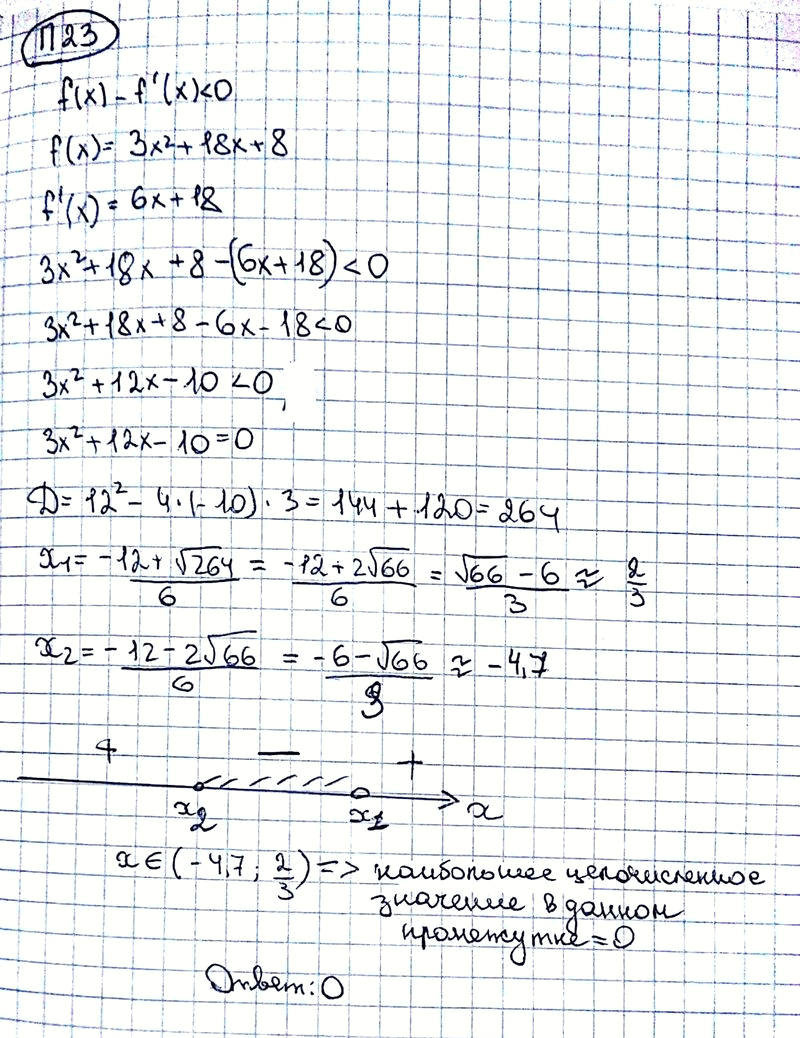 П23
f(x) - f'(x)<0
f(x)= 3x²+18x+8
f'(x) = 6x+18
3x²+18x+8-(6x+18)<0
3x²+18x+8-6x-18<0
3x²+12x-10<0,
3x²+12x-10=0
D= 12²-4·(-10)·3=144+120=264
x₁= (-12+√264)/6 = (-12+2√66)/6 = (√66-6)/3 ≈ 2/3
x₂= (-12-2√66)/6 = (-6-√66)/3 ≈ -4,7
+ − +
x₂ x₁ x
x∈(-4,7; 2/3) => наибольшее целочисленное
значение в данном
промежутке=0
Ответ: 0